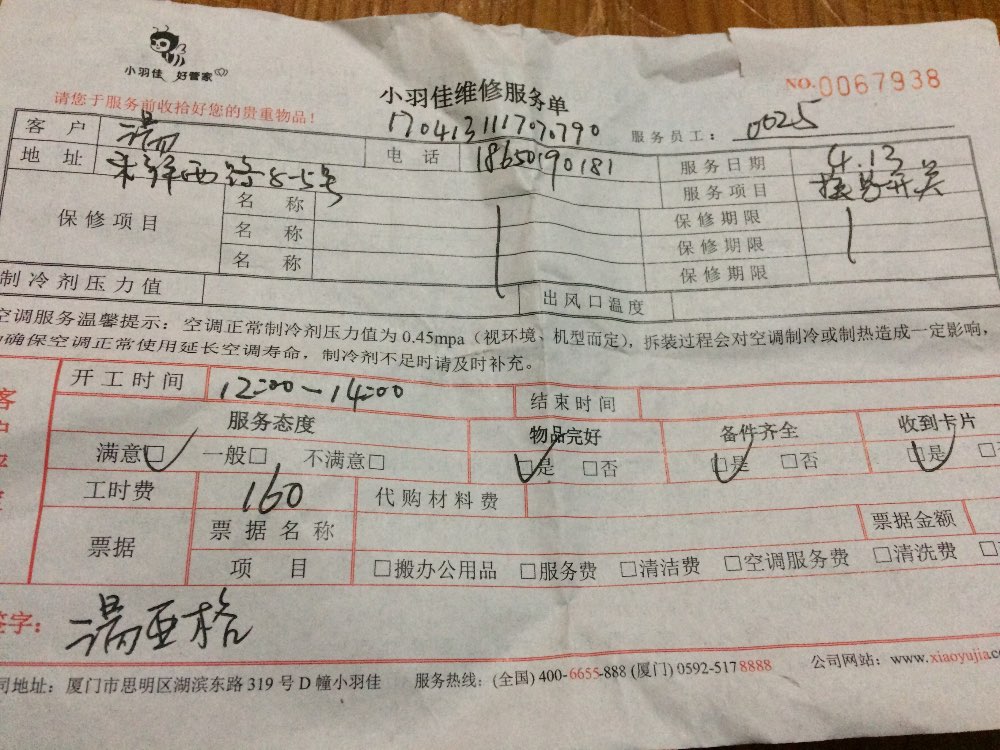 小羽佳 好管家
请您于服务前收拾好您的贵重物品！
小羽佳维修服务单
NO.0067938
1704131117070790
服务员工： 0025
客户 电话 18650190181 服务日期 4.13
地址 西 8-5号 服务项目 开关
保修项目 名称 保修期限
名称 保修期限
名称 保修期限
制冷剂压力值 出风口温度
空调服务温馨提示：空调正常制冷剂压力值为 0.45mpa（视环境、机型而定），拆装过程会对空调制冷或制热造成一定影响，
确保空调正常使用延长空调寿命，制冷剂不足时请及时补充。
开工时间 12:00-14:00 结束时间
服务态度 物品完好 备件齐全 收到卡片
满意□ 一般□ 不满意□ □是 □否 □是 □否 □是
工时费 160 代购材料费
票据 票据名称 票据金额
项目 □搬办公用品 □服务费 □清洁费 □空调服务费 □清洗费
签字：
司地址：厦门市思明区湖滨东路 319 号 D 幢小羽佳 服务热线：(全国) 400-6655-888 (厦门) 0592-5178888 公司网站：www.xiaoyujia.co